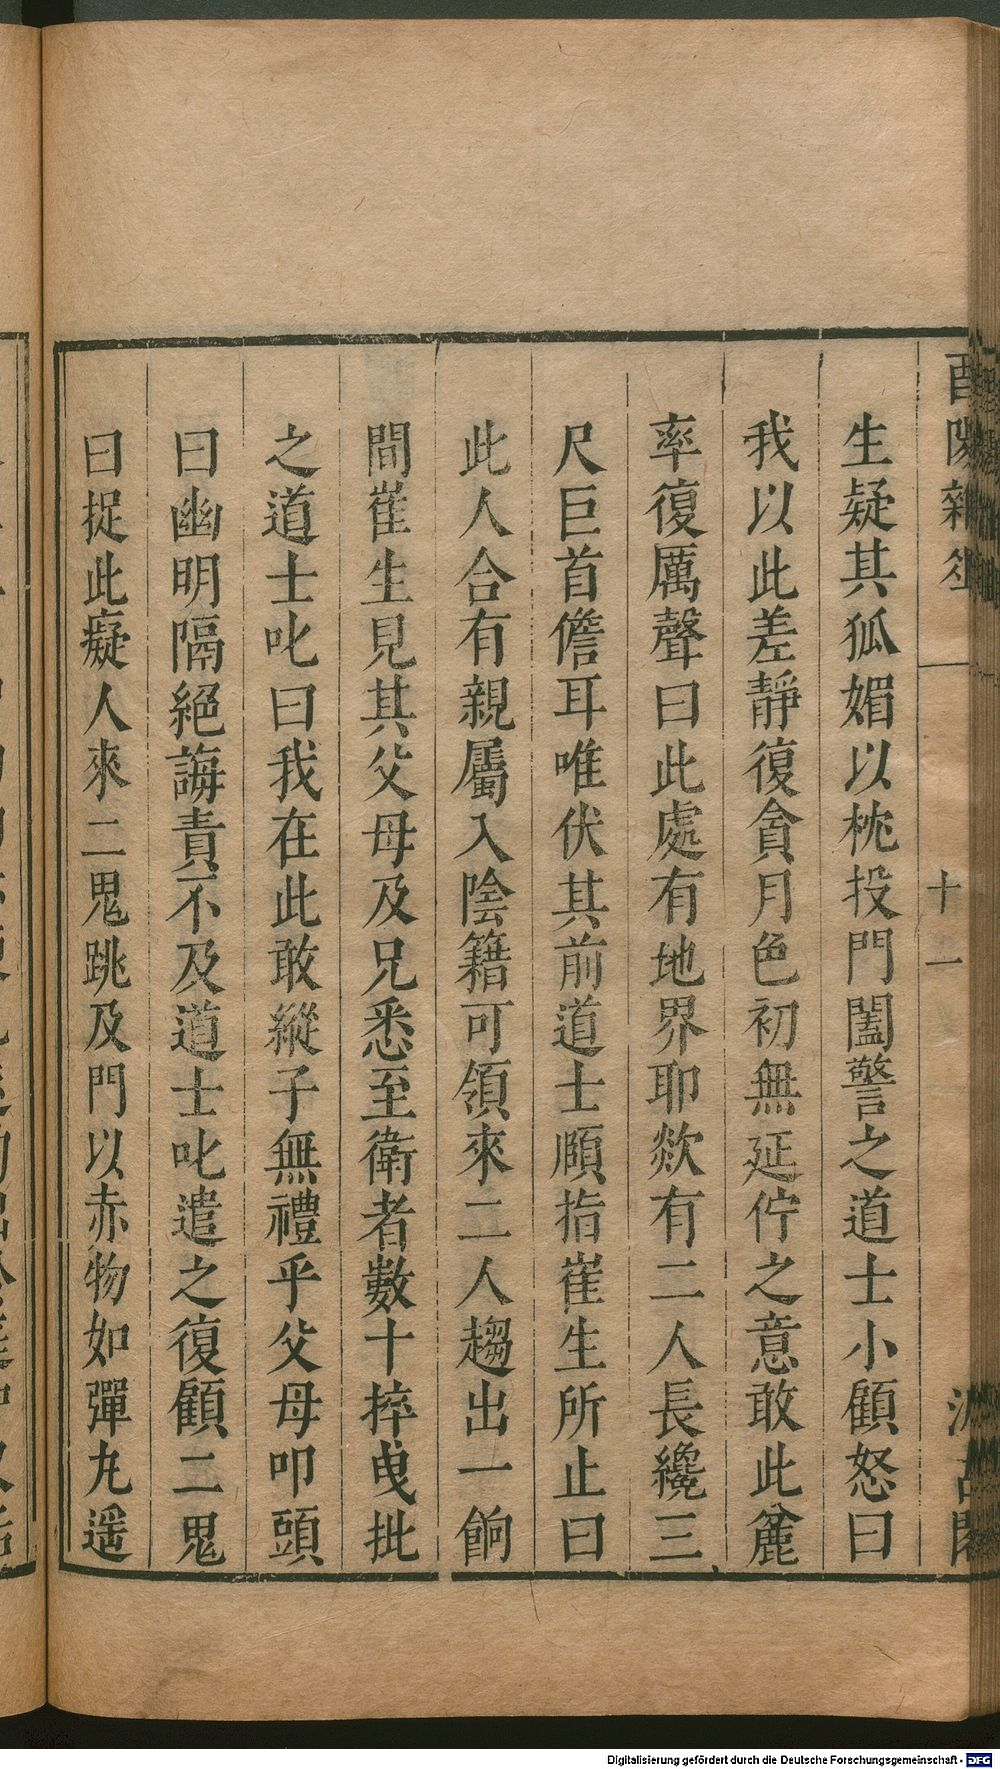 生疑其狐媚以枕投門闔警之道士小顧怒曰
我以此差靜復貪月色初無延佇之意敢此麄
率復厲聲曰此處有地界耶欻有二人長纔三
尺巨首儋耳唯伏其前道士頤指崔生所止曰
此人合有親屬入陰籍可領來二人趨出一餉
間崔生見其父母及兄悉至衛者數十捽曳批
之道士叱曰我在此敢縱子無禮乎父母叩頭
曰幽明隔絕誨責不及道士叱遣之復顧二鬼
曰捉此癡人來二鬼跳及門以赤物如彈丸遥
酉陽雜
十一
Digitalisierung gefördert durch die Deutsche Forschungsgemeinschaft - DFG